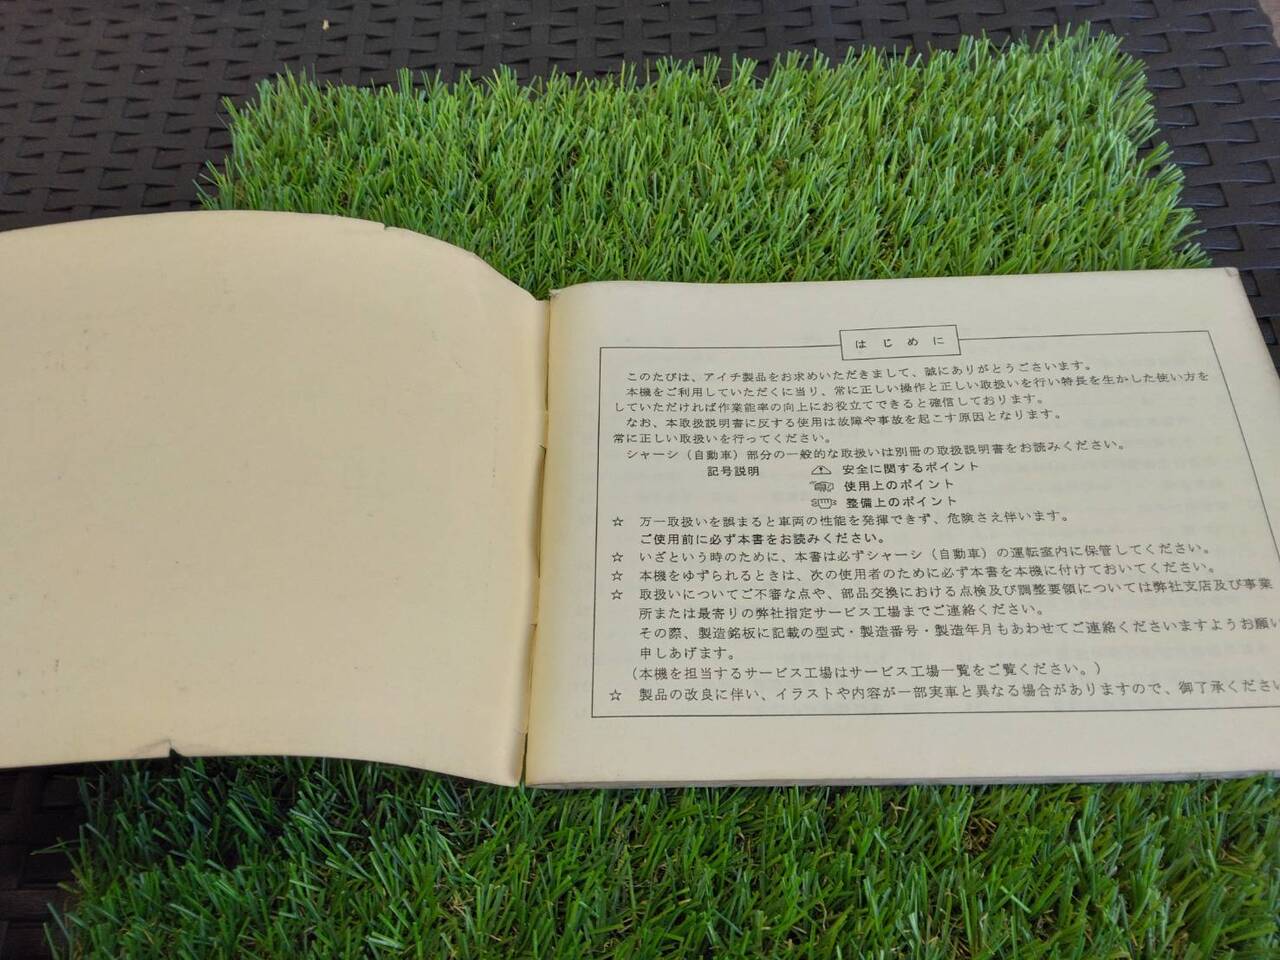 はじめに
このたびは、アイチ製品をお求めいただきまして、誠にありがとうございます。
本機をご利用していただくに当り、常に正しい操作と正しい取扱いを行い特長を生かした使い方を
していただければ作業能率の向上にお役立てできると確信しております。
なお、本取扱説明書に反する使用は故障や事故を起こす原因となります。
常に正しい取扱いを行ってください。
シャーシ(自動車)部分の一般的な取扱いは別冊の取扱説明書をお読みください。
記号説明 安全に関するポイント
使用上のポイント
整備上のポイント
☆ 万一取扱いを誤まると車両の性能を発揮できず、危険さえ伴います。
ご使用前に必ず本書をお読みください。
☆ いざという時のために、本書は必ずシャーシ(自動車)の運転室内に保管してください。
☆ 本機をゆずられるときは、次の使用者のために必ず本書を本機に付けておいてください。
☆ 取扱いについてご不審な点や、部品交換における点検及び調整要領については弊社支店及び事業
所または最寄りの弊社指定サービス工場までご連絡ください。
その際、製造銘板に記載の型式・製造番号・製造年月もあわせてご連絡くださいますようお願い
申しあげます。
(本機を担当するサービス工場はサービス工場一覧をご覧ください。)
☆ 製品の改良に伴い、イラストや内容が一部実車と異なる場合がありますので、御了承くださ